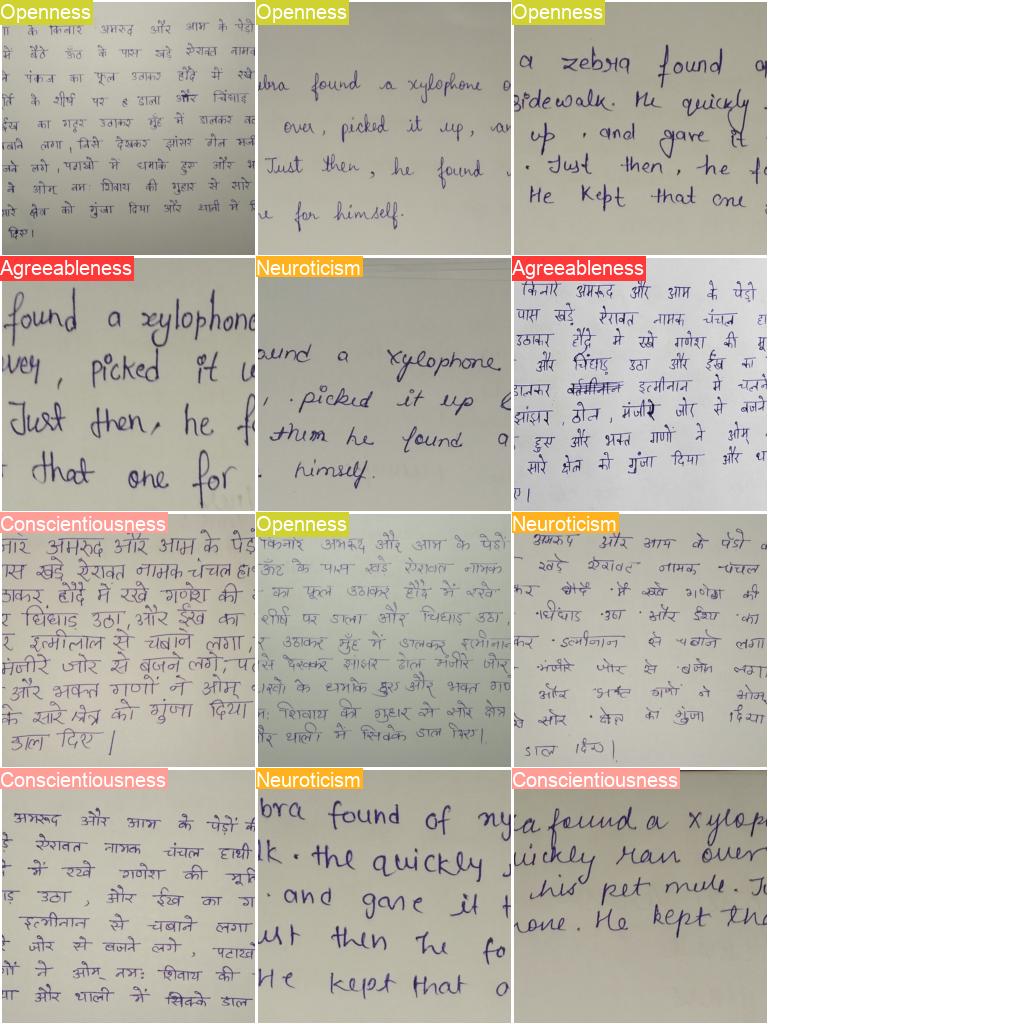 Openness
के किनारे अमरूद और आम के पेड़ो
में बैठे ऊँट के पास खड़े ऐरावत नामक
पंकज का फूल उठाकर हौदे में रखे
के शीर्ष पर डाला और चिंघाड़
ईख का गट्ठर उठाकर मुँह में डालकर
चबाने लगा, जिसे देखकर झांझर ढोल
बजने लगे, पटाखों में धमाके हुए और
ने ओम् नमः शिवाय की गुहार से सारे
सारे क्षेत्र को गुंजा दिया और थाली में
दिए।
Openness
ebra found a xylophone
over, picked it up,
Just then, he found
for himself.
Openness
a zebra found
sidewalk. He quickly
up . and gave it
. Just then, he
He Kept that one
Agreeableness
found a xylophone
over, picked it
Just then, he
that one for
Neuroticism
ound a xylophone
, . picked it up
them he found a
. himself.
Agreeableness
किनारे अमरूद और आम के पेड़ो
पास खड़े ऐरावत नामक चंचल
उठाकर हौदे मे रखे गणेश की
और चिंघाड़ उठा और ईख का
डालकर इत्मीनान से चबाने
झांझर, ढोल, मंजीरे जोर से बजने
हुए और भक्त गणों ने ओम्
सारे क्षेत्र को गुंजा दिया और
Conscientiousness
नारे अमरुद और आम के पेड़ों
पास खड़े ऐरावत नामक चंचल
उठाकर हौदे में रखे गणेश की
चिंघाड़ उठा, और ईख का
इत्मीलाल से चबाने लगा,
मंजीरे जोर से बजने लगे,
और भक्त गणों ने ओम्
के सारे क्षेत्र को गुंजा दिया
डाल दिए।
Openness
किनारे अमरूद और आम के पेडों
ऊँट के पास खड़े ऐरावत नामक
का फूल उठाकर हौदे में रखे
शीर्ष पर डाला और चिंघाड़ उठा,
उठाकर मुँह में डालकर इत्मीनान
से देखकर झांझर ढोल मंजीरे जोर
के धमाके हुए और भक्त
शिवाय की गुहार से सारे क्षेत्र
और थाली में सिक्के डाल दिए।
Neuroticism
अमरुद और आम के पेडो
खड़े ऐरावट नामक चंचल
कर हौदे में रखे गणेश की
चिंघाड़ उठा और ईख का
कर इत्मीनान से चबाने लगा
मंजीरे जोर से बजने लगा
और भक्त गणों ने ओम्
से सारे क्षेत्र को गुंजा दिया
डाल दिए।
Conscientiousness
अमरूद और आम के पेड़ों
ऐरावत नामक चंचल हाथी
में रखे गणेश की
उठा, और ईख का
इत्मीनान से चबाने लगा
जोर से बजने लगे, पटाखे
ने ओम् नमः शिवाय की
और थाली में सिक्के डाल
Neuroticism
bra found of
lk. the quickly
. and gave it
ust then he fo
He kept that
Conscientiousness
a found a xylop
uickly ran over
his pet mule.
one. He kept